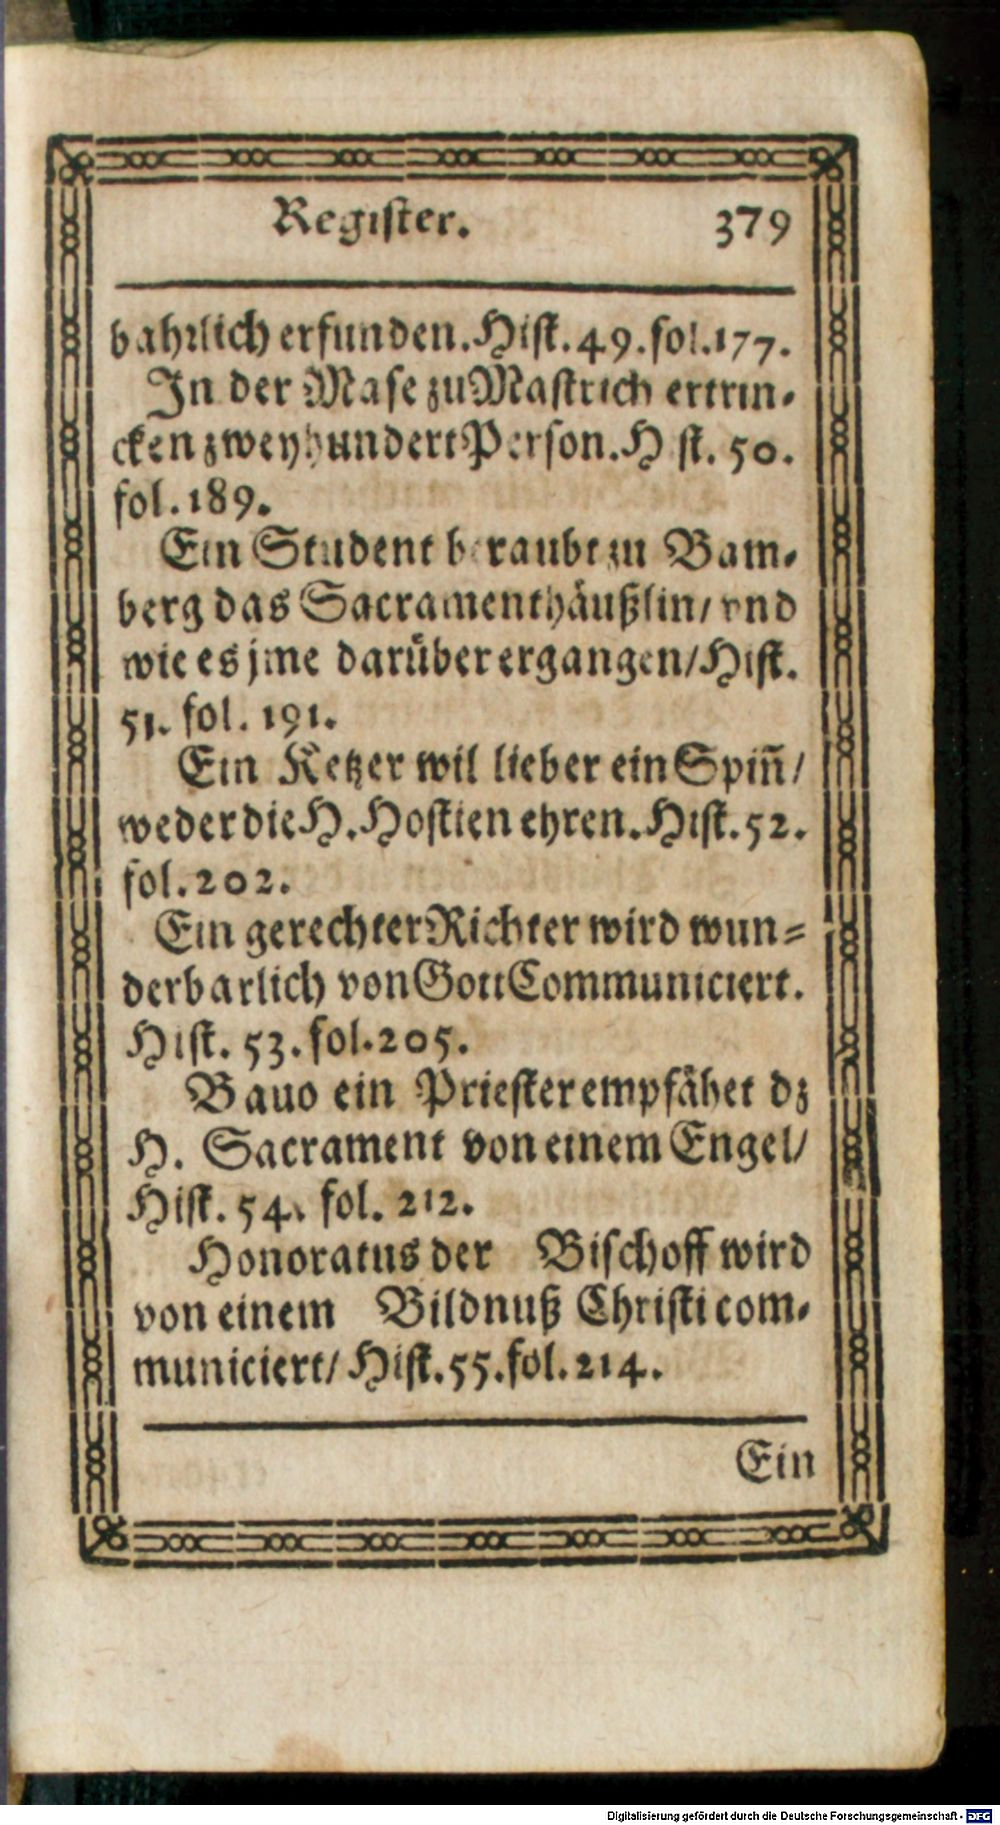 Register. 379
bahrlich erfunden. Hist. 49. fol. 177.
In der Mase zu Mastrich ertrin-
cken zweyhundert Person. Hist. 50.
fol. 189.
Ein Student beraubt zu Bam-
berg das Sacramenthäußlin/ vnd
wie es jme darüber ergangen/ Hist.
51. fol. 191.
Ein Ketzer wil lieber ein Spiñ/
weder die H. Hostien ehren. Hist. 52.
fol. 202.
Ein gerechter Richter wird wun=
derbarlich von Gott Communiciert.
Hist. 53. fol. 205.
Bauo ein Priester empfähet dz
H. Sacrament von einem Engel/
Hist. 54. fol. 212.
Honoratus der Bischoff wird
von einem Bildnuß Christi com-
municiert/ Hist. 55. fol. 214.
Ein
Digitalisierung gefördert durch die Deutsche Forschungsgemeinschaft - DFG